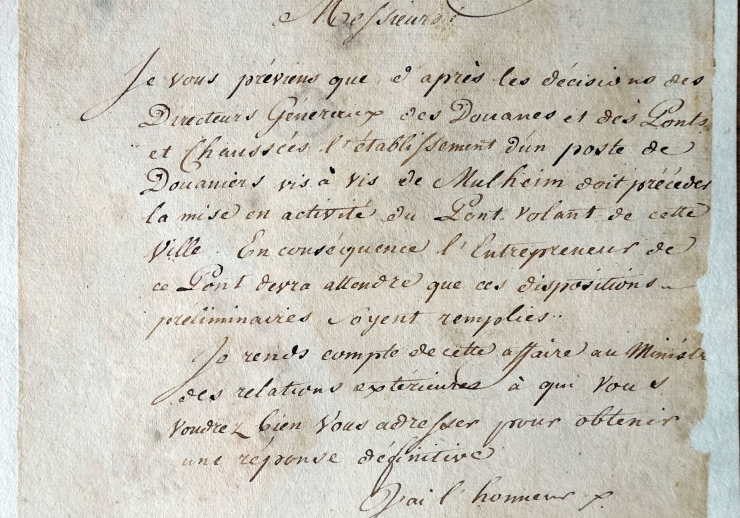 Messieurs!
Je vous préviens que d'après les décisions des
Directeurs Généraux des Douanes et des Ponts
et Chaussées l'établissement d'un poste de
Douaniers vis à vis de Mulheim doit précéder
la mise en activité du Pont volant de cette
Ville. En conséquence l'Entrepreneur de
ce Pont devra attendre que ces dispositions
préliminaires soyent remplies.
Je rends compte de cette affaire au Minist
des relations extérieures à qui vous
voudrez bien vous adresser pour obtenir
une réponse définitive
J'ai l'honneur